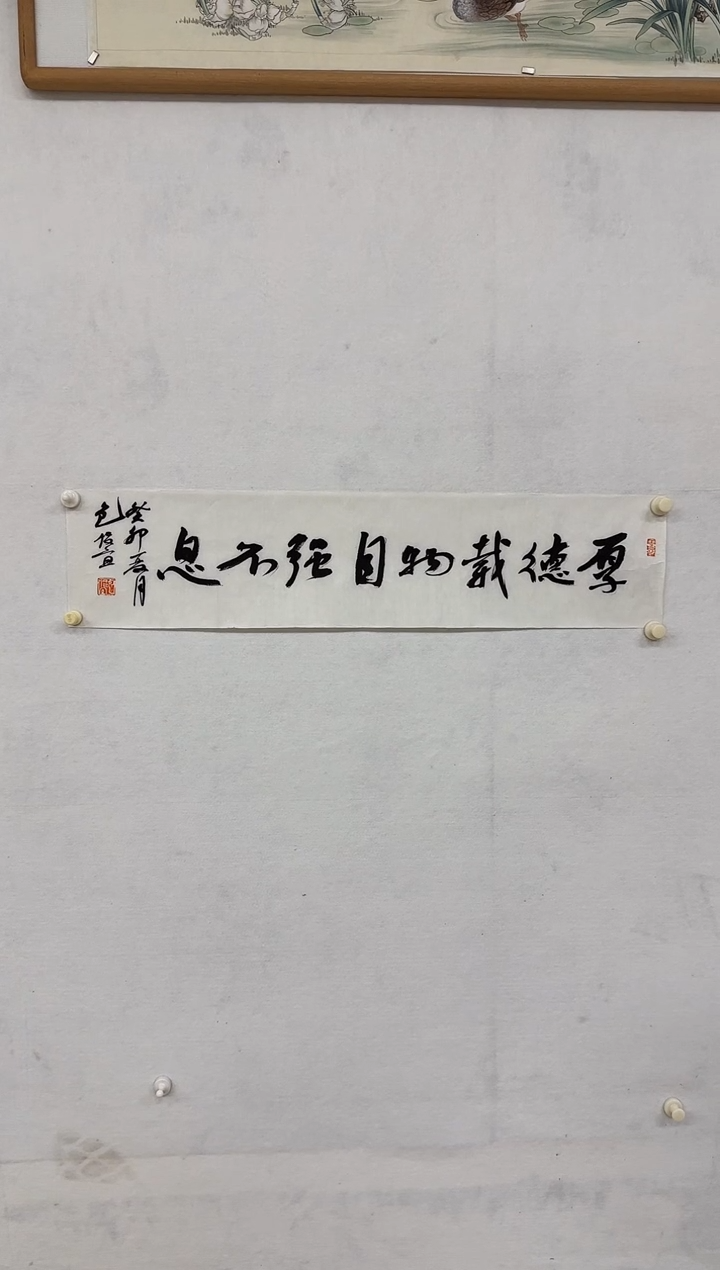 厚德载物自强不息
癸卯春月